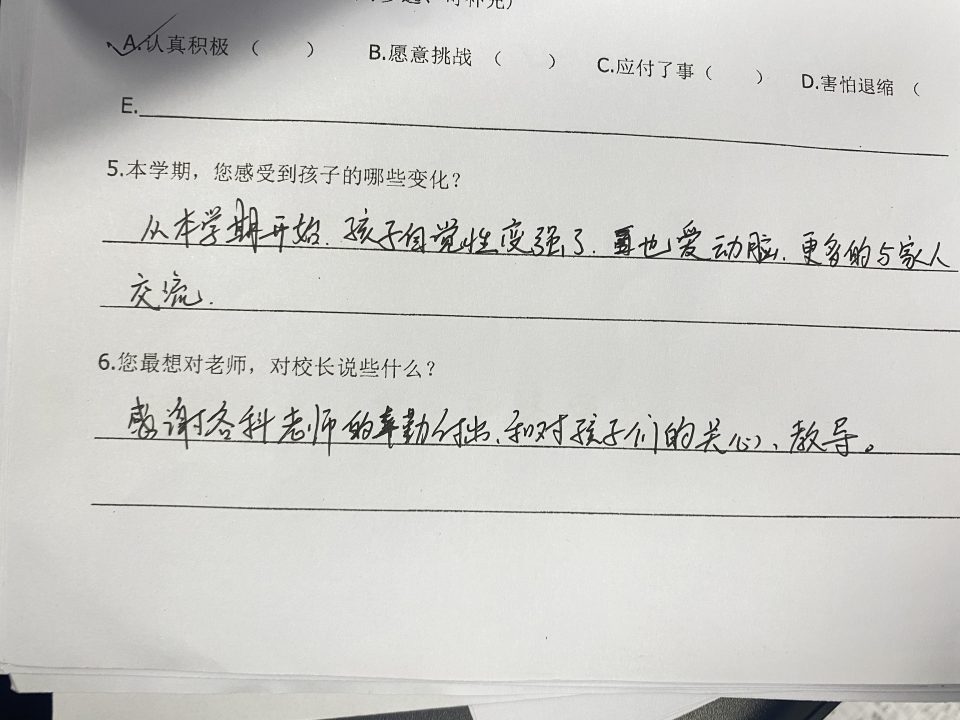 A.认真积极 （ ） B.愿意挑战 （ ） C.应付了事（ ） D.害怕退缩 （
E.
5.本学期，您感受到孩子的哪些变化？
从本学期开始.孩子自觉性变强了.也爱动脑.更多的与家人
交流.
6.您最想对老师，对校长说些什么？
感谢各科老师的辛勤付出、和对孩子们的关心、教导。